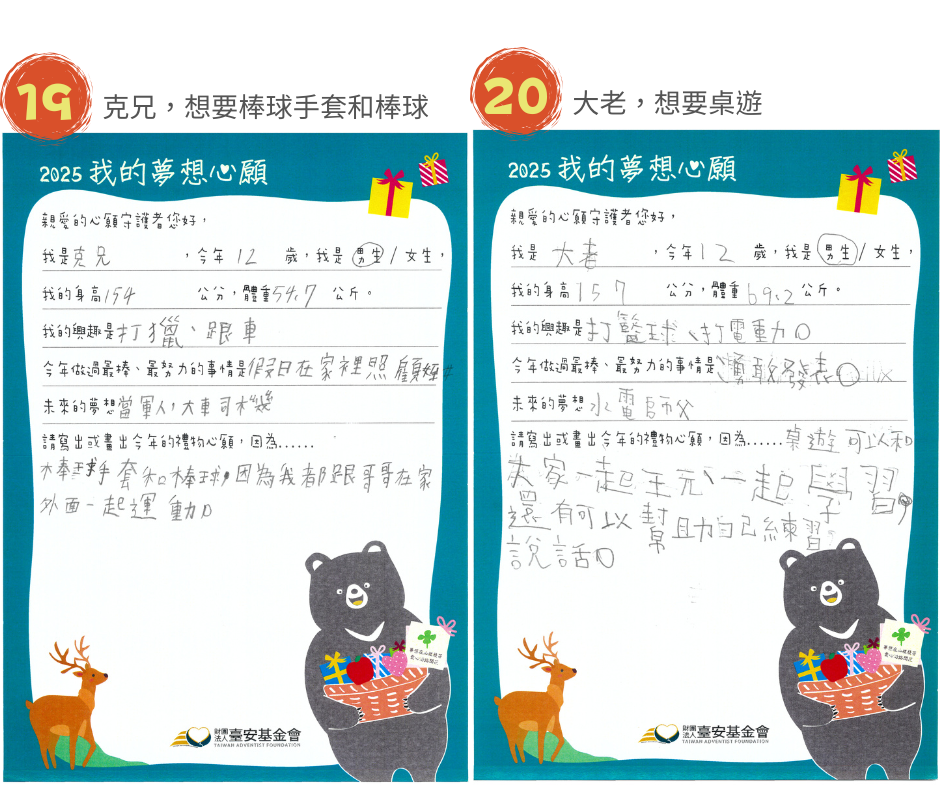 19
克兄，想要棒球手套和棒球
2025 我的夢想心願
親愛的心願守護者您好，
我是克兄，今年 12 歲，我是 男生 / 女生，
我的身高 154 公分，體重 54.7 公斤。
我的興趣是打獵、跟車
今年做過最棒、最努力的事情是假日在家裡照顧
未來的夢想當軍人，大車司機
請寫出或畫出今年的禮物心願，因為......
木棒球手套和棒球，因為我都跟哥哥在家
外面一起運動。
財團法人臺安基金會
TAIWAN ADVENTIST FOUNDATION
20
大老，想要桌遊
2025 我的夢想心願
親愛的心願守護者您好，
我是 大老，今年 12 歲，我是 男生 / 女生，
我的身高 157 公分，體重 69.2 公斤。
我的興趣是打籃球、打電動。
今年做過最棒、最努力的事情是勇敢發表。
未來的夢想水電師父
請寫出或畫出今年的禮物心願，因為......桌遊可以和
大家一起玩、一起學習，
還有可以幫助自己練習
說話。
財團法人臺安基金會
TAIWAN ADVENTIST FOUNDATION